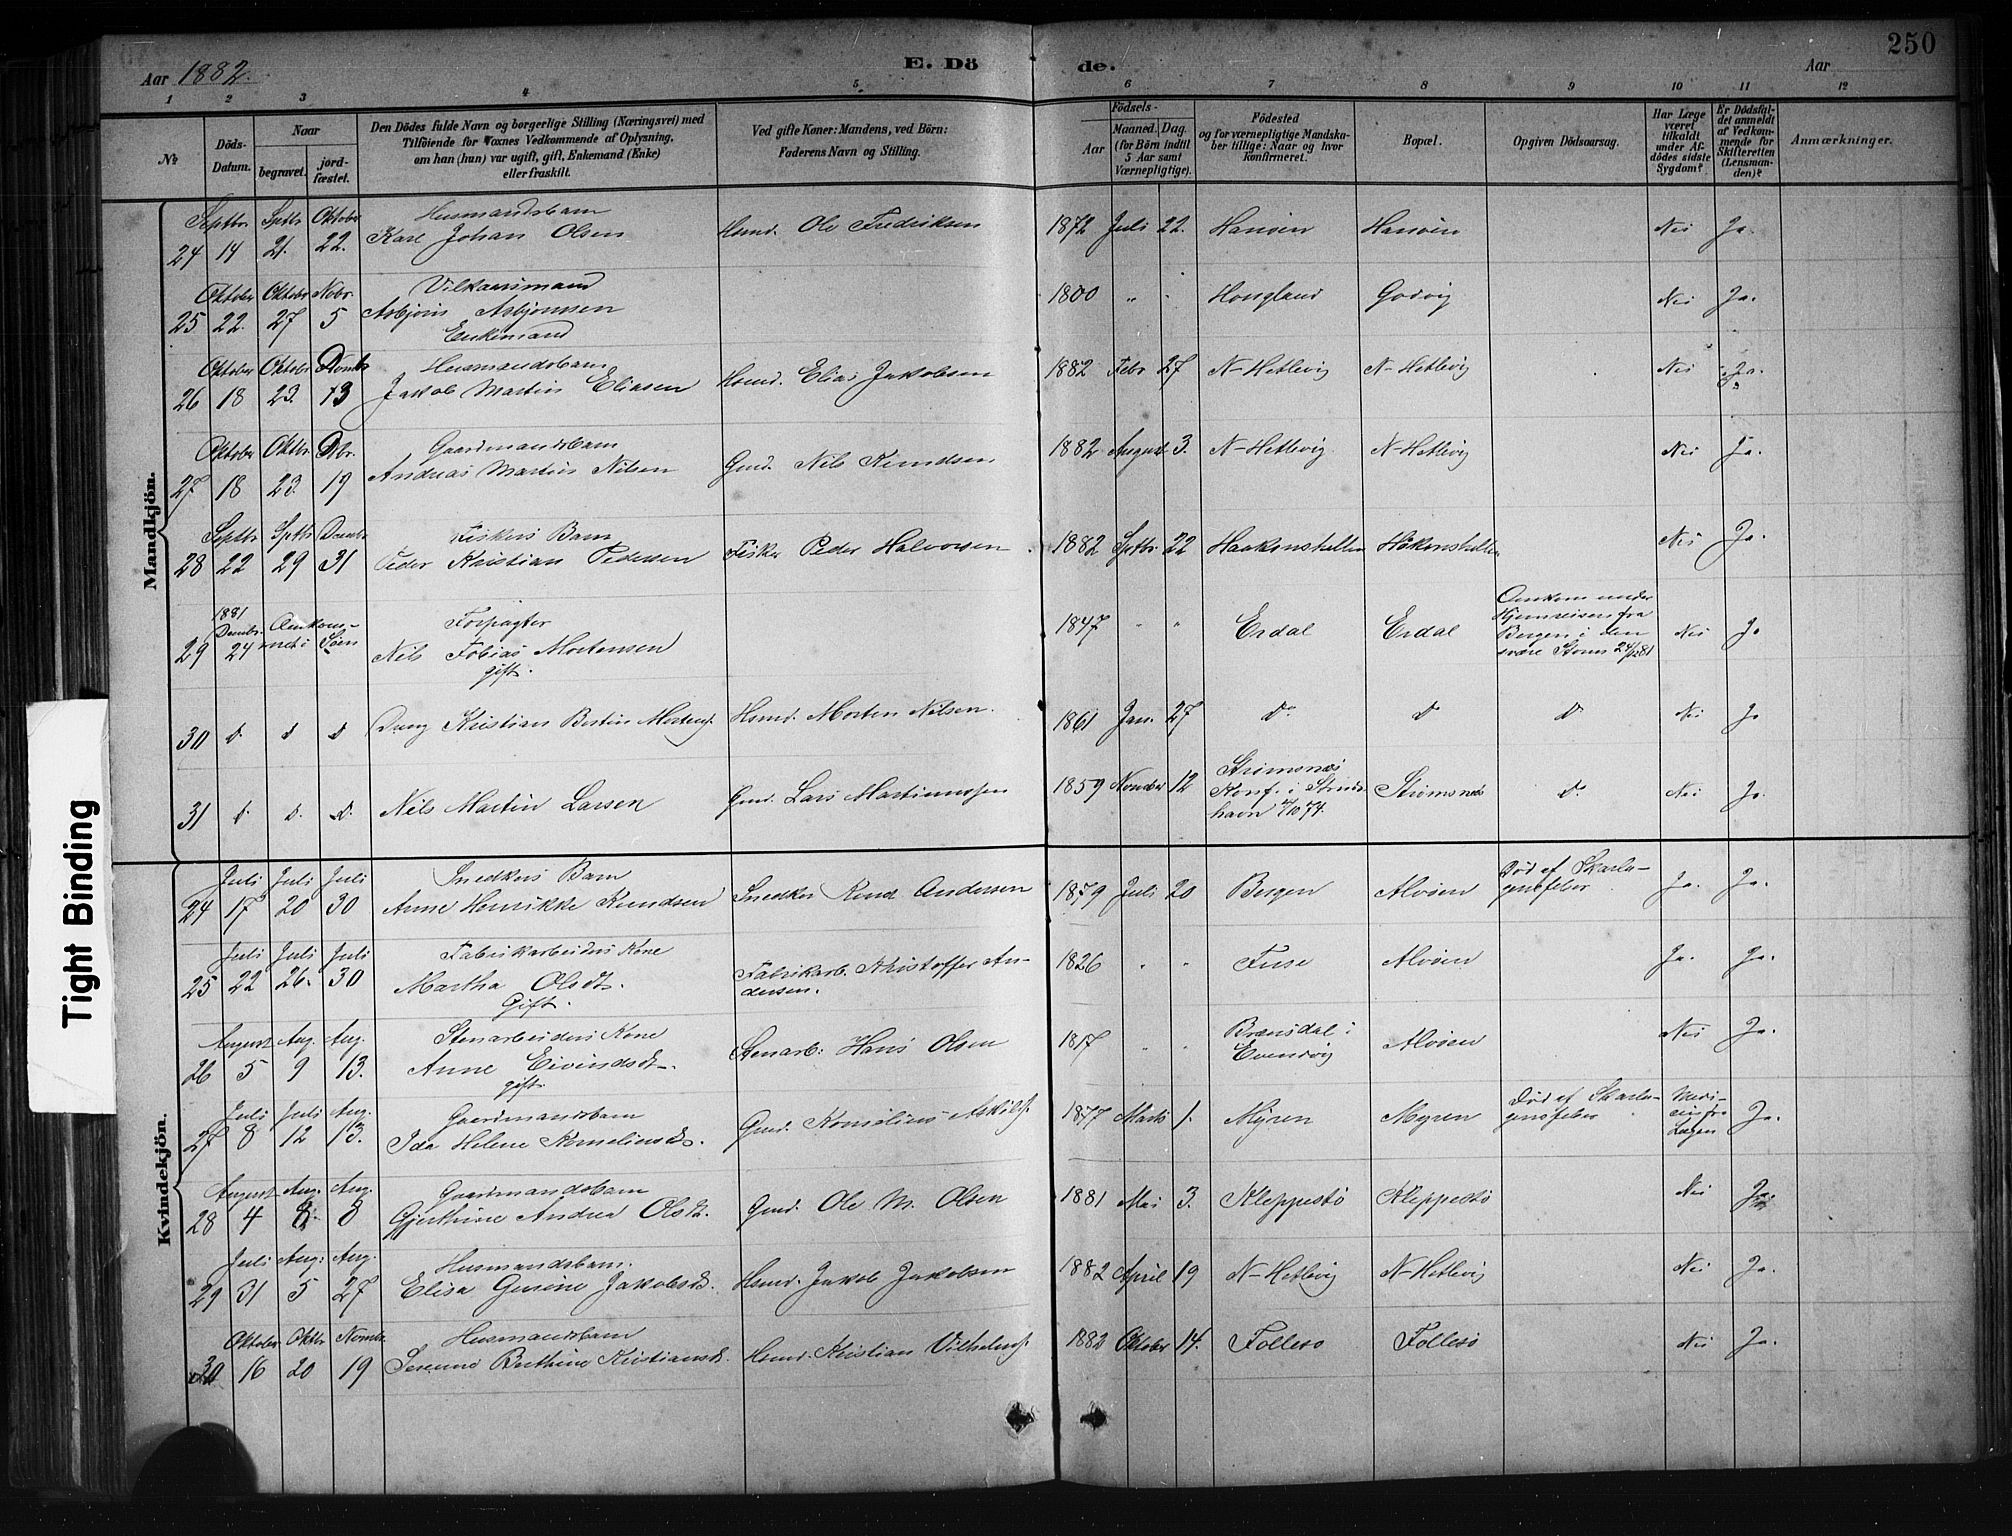 250
Aar 1882.
E. Dö de.
Aar
1 2 3 4 5 6 7 8 9 10 11 12
No
Döds-Datum.
Naar
begravet.
jord-fæstet.
Den Dödes fulde Navn og borgerlige Stilling (Næringsvei) med
Tilföiende for Voxnes Vedkommende af Oplysning,
om han (hun) var ugift, gift, Enkemand (Enke)
eller fraskilt.
Ved gifte Koner: Mandens, ved Börn:
Faderens Navn og Stilling.
Födsels-
Aar
Maaned. Dag.
(for Börn indtil
5 Aar samt
Værnepligtige).
Födested
og for værnepligtige Mandska-
ber tillige: Naar og hvor
konfirmeret.
Bopæl.
Opgiven Dödsaarsag.
Har Læge
været
tilkaldt
under Af-
dödes sidste
Sygdom?
Er Dödsfal-
det anmeldt
af Vedkom-
mende for
Skifteretten
(Lensman-
den)?
Anmærkninger.
Mandkjön.
Septbr Sptbr Oktober Husmandsbarn
24 14 21. 22. Karl Johan Olsen Hsmd. Ole Fredriksen 1872 Juli 22. Hanöen Hanöen Nei Ja.
Oktober Oktobr Nobr. Vilkaarsmand
25 22. 27 5 Asbjörn Asbjörnsen 1800 " " Hougland Godvig Nei Ja.
Enkemand
Oktober Oktobr Husmandsbarn
26 18 23. 13 Jakob Martin Eliasen Hsmd. Elias Jakobsen 1882 Febr 27 N-Hetlevig N-Hetlevig Nei Ja.
Oktober Oktbr. Dbr. Gaardmandsbarn
27 18 23. 19 Andreas Martin Nilsen Gmd. Nils Knudsen 1882 August 3. N-Hetlevig N-Hetlevig Nei Ja.
Septbr Sptbr Decmbr Fiskers Barn
28 22 29 31 Peder Kristian Pedersen Fisker Peder Halvorsen 1882 Sptbr. 22 Haakonshellen Håkonshellen Nei Ja.
1881 Decmbr. 24 Omkom-met i Søen Forpagter
29 Nils Tobias Mortensen 1847 " " Erdal Erdal Omkom under
Hjemreisen fra
Bergen i den
svære Storm 24/12 81 Nei Ja
gift.
30 d. d d Dreng Kristian Bertin Mortens. Hsmd. Morten Nilsen. 1861 Jan. 27 do d d Nei Ja
31 d. d. d. Nils Martin Larsen Gmd. Lars Martinussen 1859 Novmber 12 Strömsnæs
Konf. i
havn 74. Strömsnes d. Nei Ja.
Kvindekjön.
Juli Juli Juli Snedkers Barn
24 17 20 30 Anne Henrikke Knudsen Snedker Knud Andersen 1879 Juli 20 Bergen Alvöen Död af Skarla-
gensfeber Ja. Ja.
Juli Juli Juli Fabrikarbeiders Kone
25 22 26. 30 Martha Olsdt. Fabrikarb. Kristoffer An-
dersen. 1826 " " Fuse Alvöen Ja. Ja.
Gift.
August Aug. Aug. Stenarbeiders Kone
26 5 9 13. Anne Eivindsdt. Stenarb: Hans Olsen 1817 " " i
Evenvig Alvöen Nei Ja.
gift.
Juli Juli Aug. Gaardmandsbarn
27 8 12 13. Ida Helene Korneliusd. Gmd. Kornelius Askils. 1877 Marts 1. Myren Myren Död af Skarla-
gensfeber Medi-
cin fra
Lægen Ja.
August Aug. Aug. Gaardmandsbarn
28 4 8 8 Gjerthine Andrea Olsdt. Gmd. Ole M. Olsen 1881 Mai 3. Kleppestö Kleppestö Nei Ja.
Juli Aug: Aug. Husmandsbarn.
29 31 5 27 Elisa Gurine Jakobsd. Hsmd. Jakob Jakobsen 1882 April 19 N-Hetlevig N-Hetlevig Nei Ja.
Oktober Oktbr Novmbr. Husmandsbarn
30 16 20 19 Berthine Kristiansd. Hsmd. Kristian Vilhelms. 1882 Oktober 14. Follesö Follesö Nei Ja.
Tight Binding